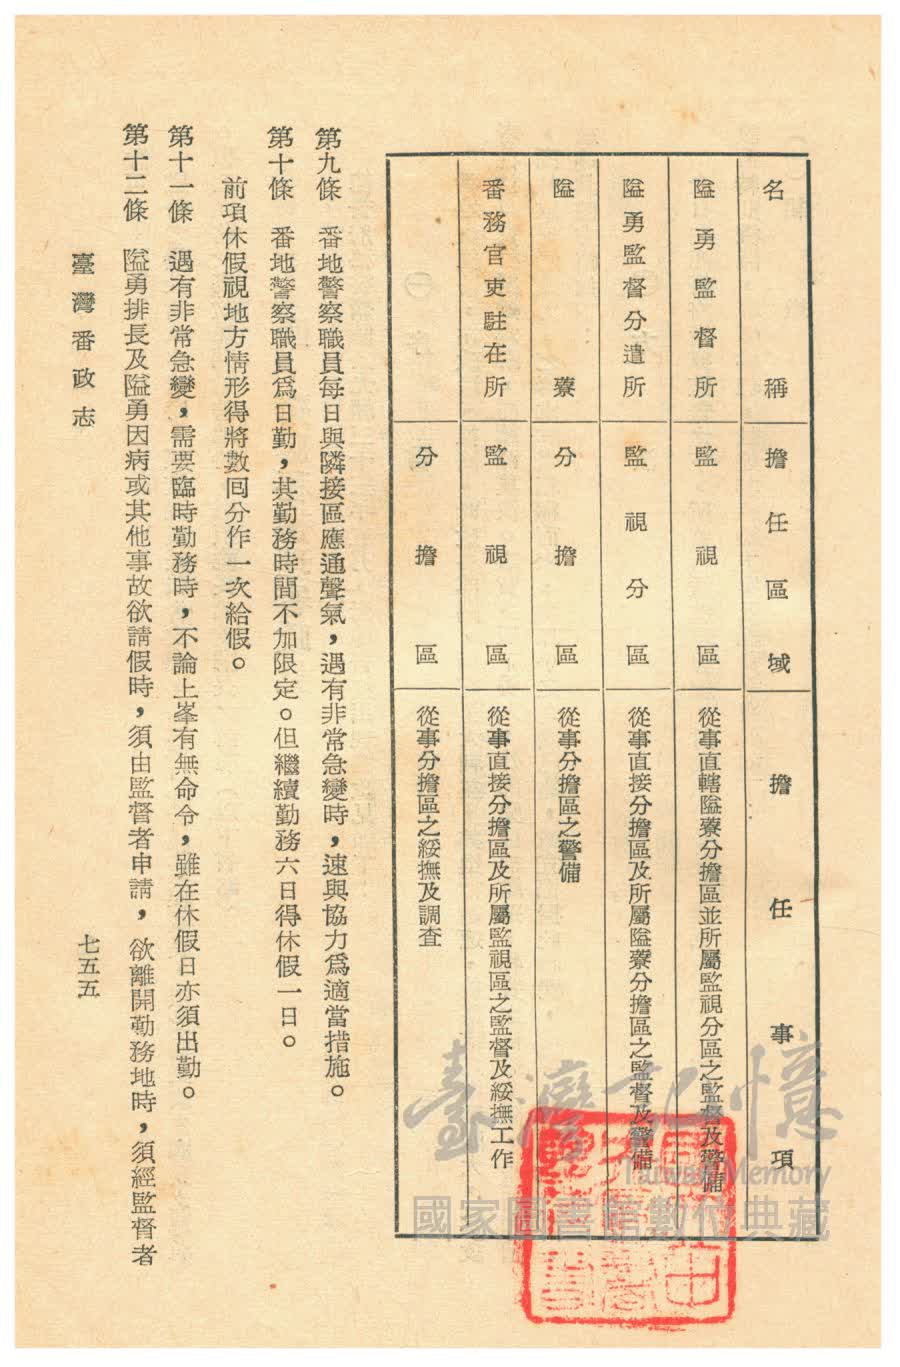 名稱 擔任區域 擔任事項
隘勇監督所 監視區 從事直轄隘寮分擔區並所屬監視分區之監督及警備
隘勇監督分遣所 監視分區 從事直接分擔區及所屬隘寮分擔區之監督及警備
隘寮 分擔區 從事分擔區之警備
番務官吏駐在所 監視區 從事直接分擔區及所屬監視區之監督及綏撫工作
分擔區 從事分擔區之綏撫及調查
第九條 番地警察職員每日與隣接區應通聲氣，遇有非常急變時，速與協力爲適當措施。
第十條 番地警察職員爲日勤，其勤務時間不加限定。但繼續勤務六日得休假一日。
前項休假視地方情形得將數囘分作一次給假。
第十一條 遇有非常急變，需要臨時勤務時，不論上峯有無命令，雖在休假日亦須出勤。
第十二條 隘勇排長及隘勇因病或其他事故欲請假時，須由監督者申請，欲離開勤務地時，須經監督者
臺灣番政志
七五五
臺灣記憶
Taiwan Memory
國家圖書館數位典藏